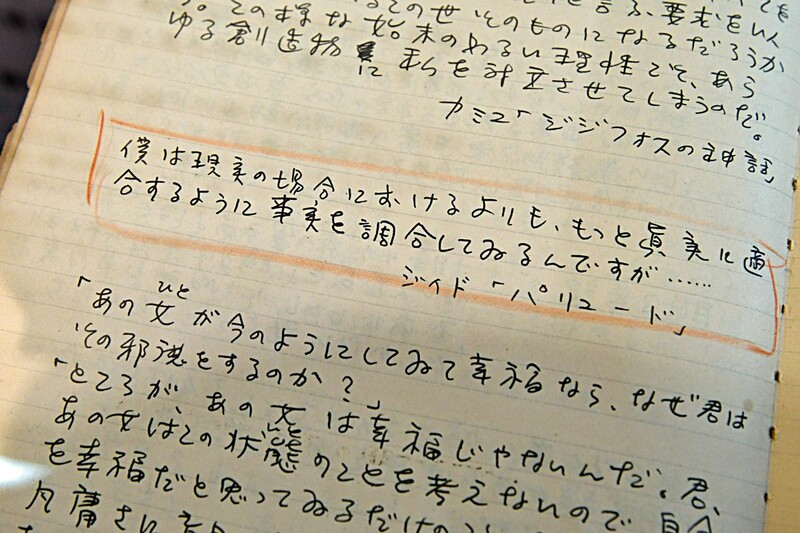 るこのせそのものになるだろうか
。この様な始末のわるい理性でそ、あら
ゆる創造物に私を対立させてしまうのだ。
カミユ「ジジフォスの神話」
僕は現実の場合におけるよりも、もっと眞実に適
合するように事実を調合してみるんですが……
ジイド「パリュード」
「あの女ひとが今のようにしてみて幸福なら、なぜ君は
その邪魂をするのか?」
「ところが、あの女ひとは幸福じゃないんだ。君、
あの女はこの状態のことを考えないので、自分
を幸福だと思ってゐるだけの
凡庸さに